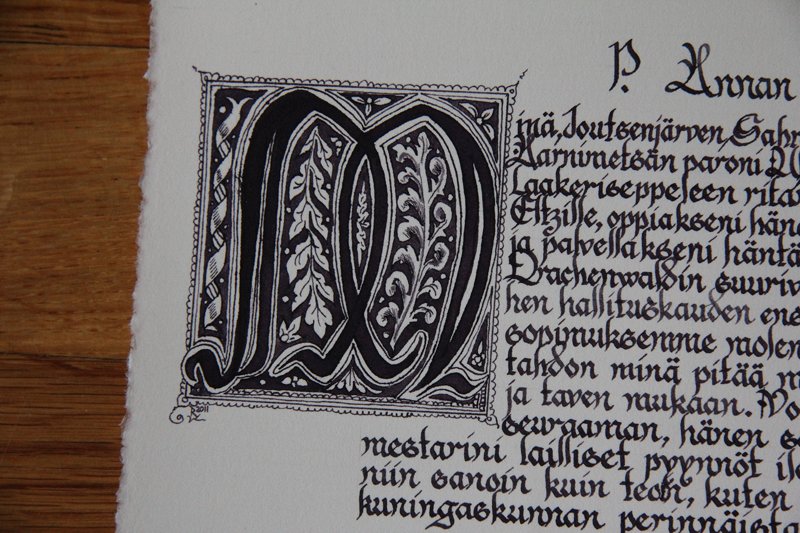 P. Annan
Minä, Joutsenjärven, Sahr
Aarnimetsän paroni
Laakeriseppeleen ritar
Eltzille, oppiakseni häne
ja palvellakseni häntä
Drachenwaldin suuriv
hen hallituskauden ens
sopimuksemme molen
tahdon minä pitää m
ja tavan mukaan. Vo
seuraaman, hänen se
mestarini lailliset pyynnöt ilo
niin sanoin kuin teoin, kuten
kuningaskunnan perinnäista
2011